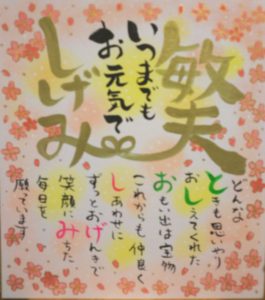 敏夫
いつまでも
お元気で
しげみ
どんな
ときも思いやり
おしえてくれた
おもい出は宝物
これからも仲良く
しあわせに
ずっとおげんきで
笑顔にみちた
毎日を
願っています